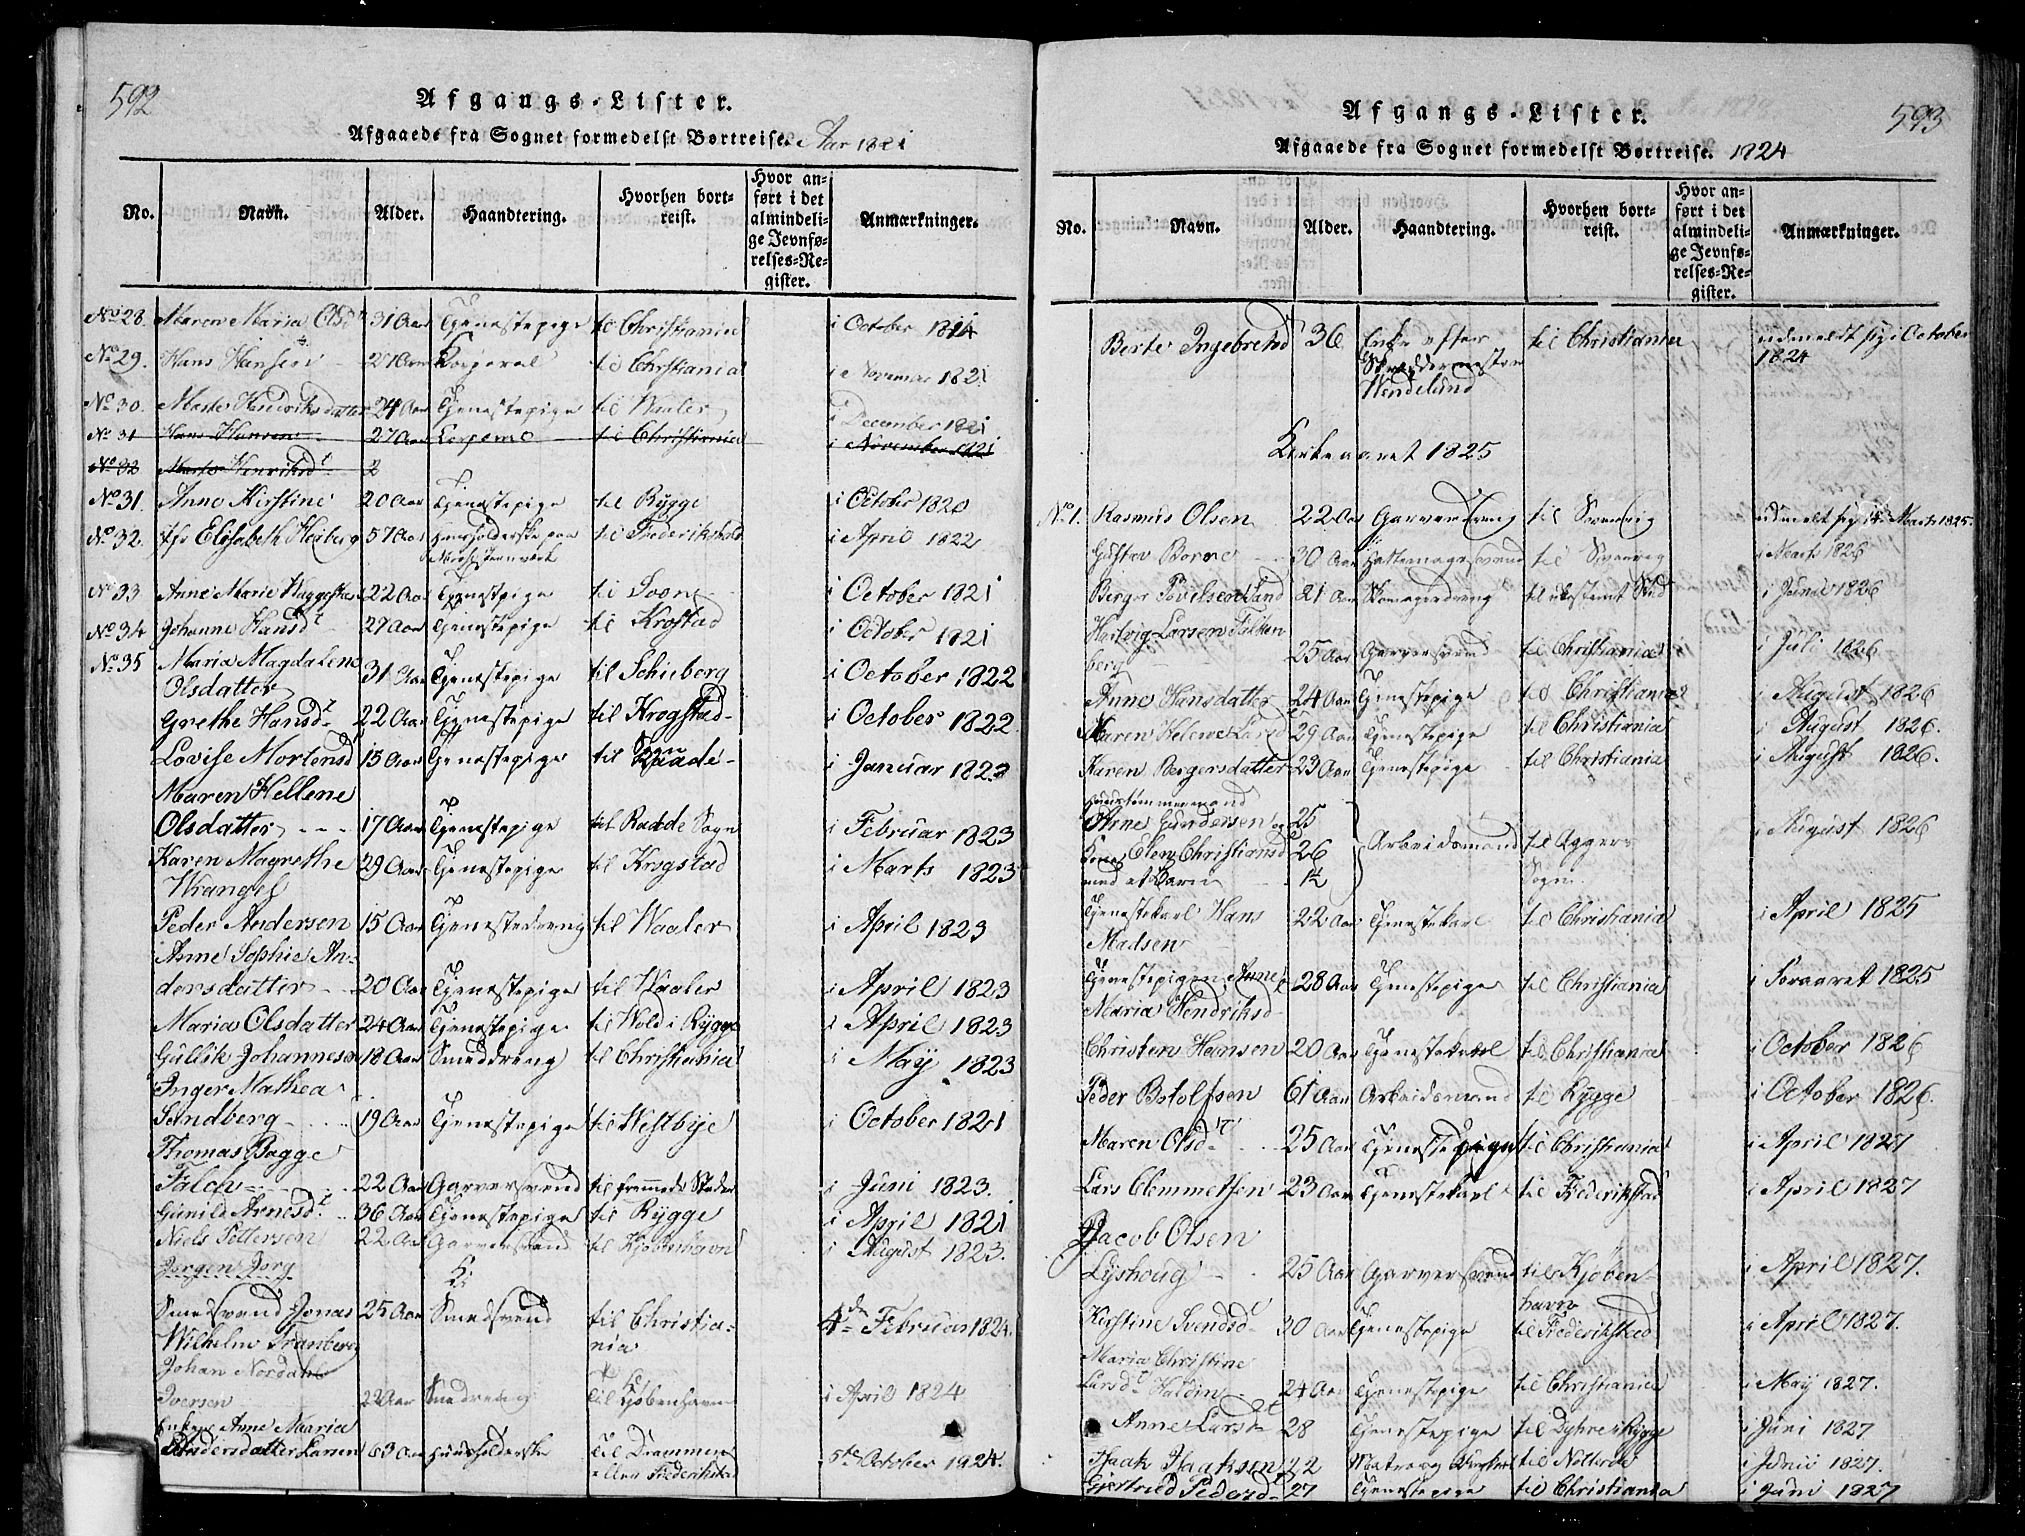 592
Afgangs-Lister.
Afgaaede fra Sognet formedelst Bortreise. Aar 1821
No.
Navn.
Alder.
Haandtering.
Hvorhen bort-
reist.
Hvor an-
ført i det
almindeli-
ge Jevnfø-
relses-Re-
gister.
Anmærkninger.
No 28. Maren Maria Olsdt 31 Aar Tjenestepige til Christiania i October 1821
No 29. Hans Hansen 27 Aar Korporal til Christiania i November 1821
No 30. Marte Hendriksdatter 24 Aar Tjenestepige til Waaler i December 1821
No 31 Hans Hansen 27 Aar til Christiania i November 1821
No 32 Marte Henriksdt 2
No 31. Anne Kirstine 20 Aar Tjenestepige til Rygge i October 1820
No 32. Jfr Elisabeth Heiberg 57 Aar til Frederikshald i April 1822
No 33 Anne Marie 22 Aar Tjenestepige til Soon i October 1821
No 34 Johanne Hansdt 27 Aar Tjenestepige til Krogstad i October 1821
No 35 Maria Magdalene
Olsdatter 31 Aar Tjenestepige til Schiberg i October 1822
Grethe Hansdt 22 Aar Tjenestepige til Krogstad i October 1822
Lovise Mortensd 15 Aar Tjenestepige til Raade Sogn i Januar 1823
Maren Hellene
Olsdatter 17 Aar Tjenestepige til Raade Sogn i Februar 1823
Karen Magrethe
Wrangel 29 Aar Tjenestepige til Krogstad i Marts 1823
Peder Andersen 15 Aar Tjenestedreng til Waaler i April 1823
Anne Sophie An-
dersdatter 20 Aar Tjenestepige til Waaler i April 1823
Maria Olsdatter 24 Aar Tjenestepige til Wold i Rygge i April 1823
Gullik Johannesen 18 Aar Smeddreng til Christiania i May 1823
Inger Mathea
Sandberg 19 Aar Tjenestepige til Westbye i October 1821
Thomas Bagge
Falch 22 Aar Garversvend til fremmede Steder i Juni 1823.
Gunild Arnesdt 36 Aar Tjenestepige til Rygge i April 1821
Niels Pettersen 22 Aar Garversvend til Kjøbenhavn i August 1823.
Jørgen Jørg
Smedsvend Jonas 25 Aar Smedsvend til Christia-
nia 4de Februar 1824.
Wilhelm Tranberg
Johan Nordahl
Iversen 22 Aar Smeddreng til Kjøbenhavn i April 1824
Enken Anne Maria
Andersdatter Larsen 63 Aar Huusholderske til Drammen 5te October 1824.
593
Afgangs-Lister.
Afgaaede fra Sognet formedelst Bortreise. 1824
No.
Navn.
Alder.
Haandtering.
Hvorhen bort-
reist.
Hvor an-
ført i det
almindeli-
ge Jevnfø-
relses-Re-
gister.
Anmærkninger.
Berte Ingebretsd 36 Enke efter til Christiania udmeldt sig i October
Skreddermester 1824
Wendelund
Kirkeaaret 1825
No 1. Rasmus Olsen 22 Aar Garverdreng til Svenvig udmelt sig Marts 1825.
Gustav Borne 30 Aar Hattemagersvend til i Marts 1826
Birger Povelsen Sand 21 Aar Skomagerdreng til ubestemt Sted i Juni 1826
Hartvig Larsen Falken
berg 25 Aar Garversvend til Christiania i Juli 1826
Anne Hansdatter 24 Aar Tjenestepige til Christiania i August 1826
Maren Helene Larsd 29 Aar Tjenestepige til Christiania i August 1826.
Karen Bergersdatter 23 Aar Tjenestepige til Christiania i August 1826.
Huustømmermand
Arne Gundersen og 25 Arbeidsmand til Aggers i August 1826
Kone Olea Christiansd 26 Sogn
med et Barn 1½
Tjenestekarl Hans
Madsen 22 Aar Tjenestekarl til Christiania i April 1825
Tjenestepigen Anne
Maria Hendriksd 28 Aar Tjenestepige til Christiania i Foraaret 1825
Christen Hansen 20 Aar Tjenestekarl til Christiania i October 1826
Peder Botolfsen 61 Aar Arbeidsmand til Rygge i October 1826.
Maren Olsdt 25 Aar Tjenestepige til Christiania i April 1827
Lars Clemmetsen 23 Aar Tjenestekarl til Frederikstad i April 1827
Jacob Olsen
Lyshoug 25 Aar Garversvend til Kjøben-
havn i April 1827.
Kirstine Svendsd 30 Aar Tjenestepige til Frederikstad i April 1827.
Maria Christine
Larsdt Haldin 24 Aar Tjenestepige til Christiania i May 1827.
Anne Larsdt 28 Tjenestepige til Dyhre i Rygge i Juni 1827
Isaak Isaksen 22 Matros til Nøtterøe i Juni 1827.
Gjertrud Pedersd 27 Tjenestepige til Christiania i Juni 1827